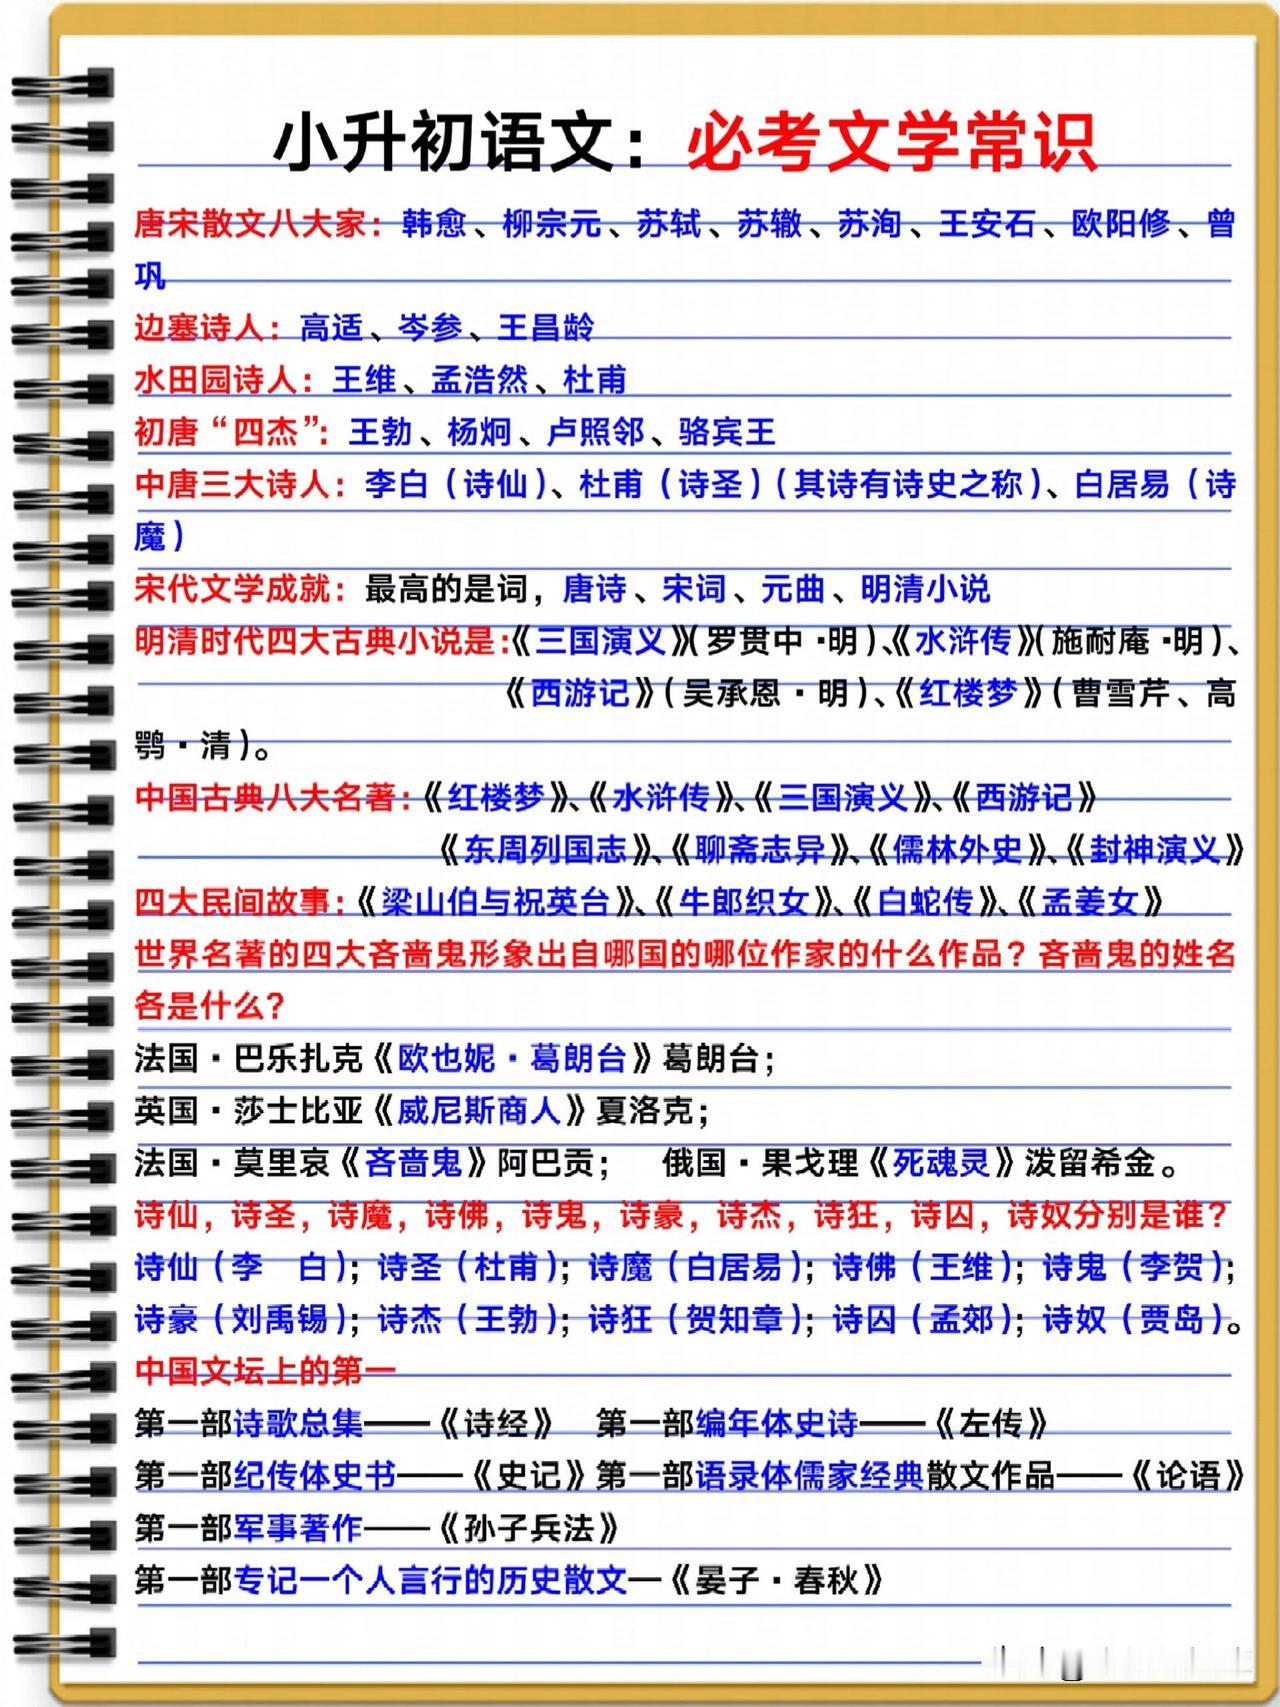 小升初语文：必考文学常识
唐宋散文八大家：韩愈、柳宗元、苏轼、苏辙、苏洵、王安石、欧阳修、曾
巩
边塞诗人：高适、岑参、王昌龄
水田园诗人：王维、孟浩然、杜甫
初唐“四杰”：王勃、杨炯、卢照邻、骆宾王
中唐三大诗人：李白（诗仙）、杜甫（诗圣）（其诗有诗史之称）、白居易（诗
魔）
宋代文学成就：最高的是词，唐诗、宋词、元曲、明清小说
明清时代四大古典小说是：《三国演义》（罗贯中·明）、《水浒传》（施耐庵·明）、
《西游记》（吴承恩·明）、《红楼梦》（曹雪芹、高
鹗·清）。
中国古典八大名著：《红楼梦》、《水浒传》、《三国演义》、《西游记》
《东周列国志》、《聊斋志异》、《儒林外史》、《封神演义》
四大民间故事：《梁山伯与祝英台》、《牛郎织女》、《白蛇传》、《孟姜女》
世界名著的四大吝啬鬼形象出自哪国的哪位作家的什么作品？吝啬鬼的姓名
各是什么？
法国·巴乐扎克《欧也妮·葛朗台》葛朗台；
英国·莎士比亚《威尼斯商人》夏洛克；
法国·莫里哀《吝啬鬼》阿巴贡； 俄国·果戈理《死魂灵》泼留希金。
诗仙，诗圣，诗魔，诗佛，诗鬼，诗豪，诗杰，诗狂，诗囚，诗奴分别是谁？
诗仙（李 白）；诗圣（杜甫）；诗魔（白居易）；诗佛（王维）；诗鬼（李贺）；
诗豪（刘禹锡）；诗杰（王勃）；诗狂（贺知章）；诗囚（孟郊）；诗奴（贾岛）。
中国文坛上的第一
第一部诗歌总集——《诗经》 第一部编年体史诗——《左传》
第一部纪传体史书——《史记》第一部语录体儒家经典散文作品——《论语》
第一部军事著作——《孙子兵法》
第一部专记一个人言行的历史散文—《晏子·春秋》